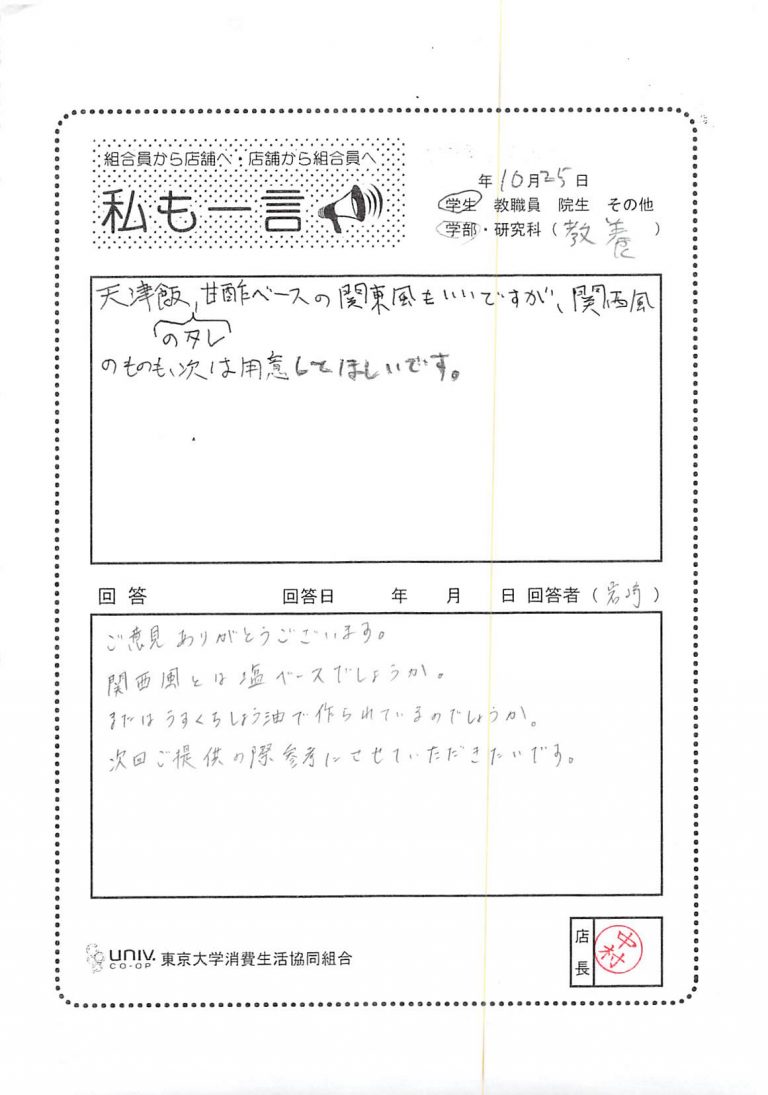 組合員から店舗へ・店舗から組合員へ
私も一言
年 10月25日
学生 教職員 院生 その他
学部・研究科（教養）
天津飯、甘酢ベースの関東風もいいですが、関西風
のタレ
のものも、次は用意してほしいです。
回答 回答日 年 月 日 回答者（岩崎）
ご意見ありがとうございます。
関西風とは塩ベースでしょうか。
またはうすくちしょう油で作られているのでしょうか。
次回ご提供の際参考にさせていただきたいです。
UNIV. CO-OP 東京大学消費生活協同組合
店長 中村